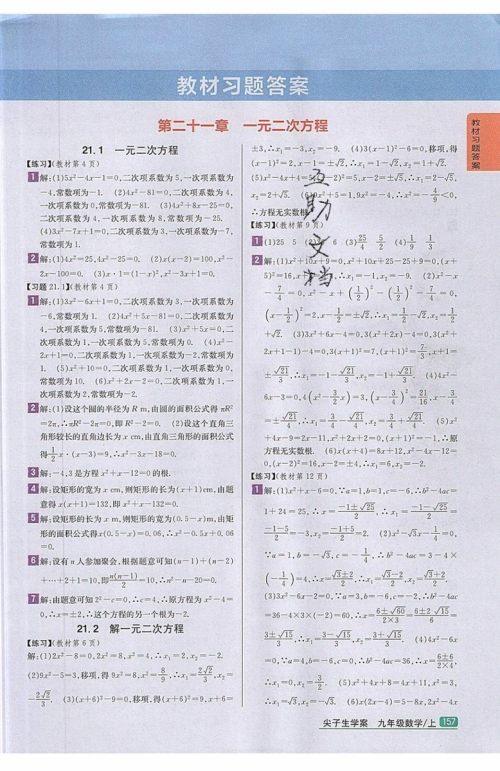 教材习题答案
第二十一章 一元二次方程
教材习题答案
21.1 一元二次方程
【练习】(教材第4页)
1 解:(1)5x²-4x-1=0,二次项系数为5,一次项系数为
-4,常数项为-1. (2)4x²-81=0,二次项系数为4,
一次项系数为0,常数项为-81. (3)4x²+8x-25=0,
二次项系数为4,一次项系数为8,常数项为-25.
(4)3x²-7x+1=0,二次项系数为3,一次项系数为-7,
常数项为1.
2 解:(1)4x²=25,4x²-25=0. (2)x(x-2)=100,x²-
2x-100=0. (3)x·1=(1-x)²,x²-3x+1=0.
【习题 21.1】(教材第4页)
1 解:(1)3x²-6x+1=0,二次项系数为3,一次项系数为
-6,常数项为1. (2)4x²+5x-81=0,二次项系数为
4,一次项系数为5,常数项为-81. (3)x²+5x=0,二次
项系数为1,一次项系数为5,常数项为0. (4)x²-
2x+1=0,二次项系数为1,一次项系数为-2,常数项为
1. (5)x²+10=0,二次项系数为1,一次项系数为0,常
数项为10. (6)x²+2x-2=0,二次项系数为1,一
次项系数为2,常数项为-2.
2 解:(1)设这个圆的半径为R m,由圆的面积公式得πR²
=2π,∴πR²-2π=0,即R²-2=0. (2)设这个直角三
角形较长的直角边长为x cm,由直角三角形的面积公式
得1/2x·(x-3)=9,∴x²-3x-18=0.
3 解:-4,3是方程x²+x-12=0的根.
4 解:设矩形的宽为x cm,则矩形的长为(x+1)cm,由题
意得x(x+1)=132,即x²+x-132=0.
5 解:设矩形的长为x m,则矩形的宽为(0.5-x)m,由矩
形的面积公式得x(0.5-x)=0.06,∴x²-0.5x+0.06
=0.
6 解:设有n人参加聚会,根据题意可知(n-1)+(n-2)
+…+2+1=10,即n(n-1)/2=10,∴n²-n-20=0.
7 解:由题意可知2²-c=0,∴c=4,∴原方程为x²-4=
0,∴x=±2,∴这个方程的另一个根为-2.
21.2 解一元二次方程
【练习】(教材第6页)
解:(1)2x²-8=0,2x²=8,x²=4,∴x₁=2,x₂=-2.
(2)9x²-5=3,移项,得9x²=8,x²=8/9,∴x₁=2√2/3,x₂=
-2√2/3. (3)(x+6)²-9=0,移项,得(x+6)²=9,x+6=
±3,∴x₁=-3,x₂=-9. (4)3(x-1)²-6=0,移项,得
(x-1)²=2,x-1=±√2,∴x₁=1-√2,x₂=1+√2.
(5)x²-4x+4=5,(x-2)²=5,x-2=±√5,∴x₁=2-√5,
x₂=2+√5. (6)9x²+5=1,9x²=-4,∴x²=-4/9<0,
∴方程无实数根.
【练习】(教材第9页)
1 (1)25 5 (2)36 6 (3)25/4 5/2 (4)1/9 1/3
2 解:(1)x²+10x+9=0,x²+10x+25-25+9=0,(x+
5)²=16,x+5=±4,∴x₁=-1,x₂=-9. (2)x²-x
-7/4=0,x²-x+(1/2)²-(1/2)²-7/4=0,
(x-1/2)²=2,x-1/2=±√2,∴x₁=1/2-√2,x₂=1/2
+√2. (3)3x²+6x-4=0,3(x²+2x)-4=0,3(x²+
2x+1-1)-4=0,3(x+1)²=7,(x+1)²=7/3,x+1=
±√21/3,∴x₁=-1-√21/3,x₂=-1+√21/3. (4)4x²-
6x-3=0,4(x²-3/2x)=3,(x-3/4)²=21/16,x-3/4=
±√21/4,∴x₁=3/4-√21/4,x₂=3/4+√21/4. (5)x²
+4x-9=2x-11,x²+2x+2=0,(x+1)²=-1,∴原
方程无实数根. (6)x(x+4)=8x+12,x²-4x-12=
0,(x-2)²=16,x-2=±4,∴x₁=6,x₂=-2.
【练习】(教材第12页)
1 解:(1)x²+x-6=0,∵a=1,b=1,c=-6,∴b²-4ac=
1+24=25,∴x=-1±√25/2=-1±5/2,∴x₁=
-1-5/2=-3,x₂=-1+5/2=2. (2)x²-√3x-1/4=0,
∵a=1,b=-√3,c=-1/4,∴b²-4ac=3-4×
(-1/4)=4,∴x=√3±2/2,∴x₁=√3-2/2,x₂=√3+2/2.
(3)3x²-6x-2=0,∵a=3,b=-6,c=-2,∴b²-4ac
=36-4×3×(-2)=60,∴x=6±√60/2×3=6±2√15/6=
3±√15/3,∴x₁=3-√15/3,x₂=3+√15/3. (4)4x²-6x
=0,∵a=4,b=-6,c=0,∴b²-4ac=36,∴x=6±6/2×4,
∴x₁=0,x₂=3/2. (5)x²+4x+8=4x+11,x²=3,
∴x₁=√3,x₂=-√3. (6)x(2x-4)=5-8x,2x²+4x-5
互助文档
尖子生学案 九年级数学/上 157